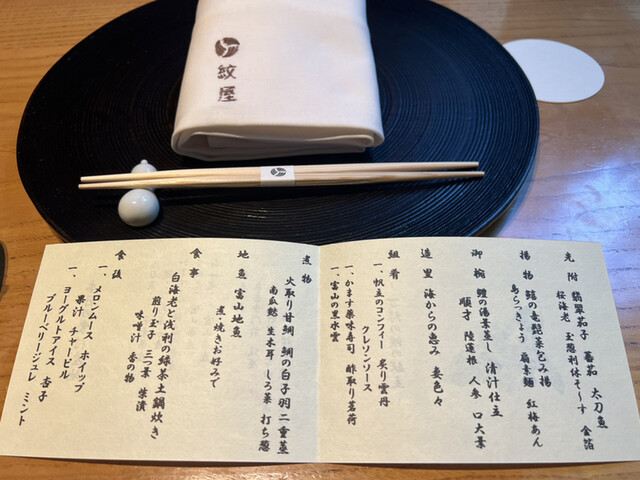 紋屋
先附 翡翠茄子 蕃茄 太刀魚
桜海老 玉葱利休そーす 金箔
揚物 鱚の竜髭茶包み揚
島らっきょう 扇素麺 紅梅あん
御椀 鱧の湯葉蒸し 清汁仕立
順才 陸蓮根 人参 口大葉
造里 海からの恵み 妻色々
組肴
一、帆立のコンフィー 炙り雲丹
クレソンソース
一、かます薬味寿司 酢取り茗荷
一、富山の黒水雲
煮物
火取り甘鯛 鯛の白子羽二重蒸
南瓜麩 生木耳 しろ菜 打ち葱
地魚 富山地魚
煮・焼きお好みで
食事
白海老と浅利の緑茶土鍋炊き
煎り玉子 三つ葉 柴漬
味噌汁 香の物
食後
一、メロンムース ホイップ
果汁 チャービル
一、ヨーグルトアイス 杏子
ブルーベリージュレ ミント